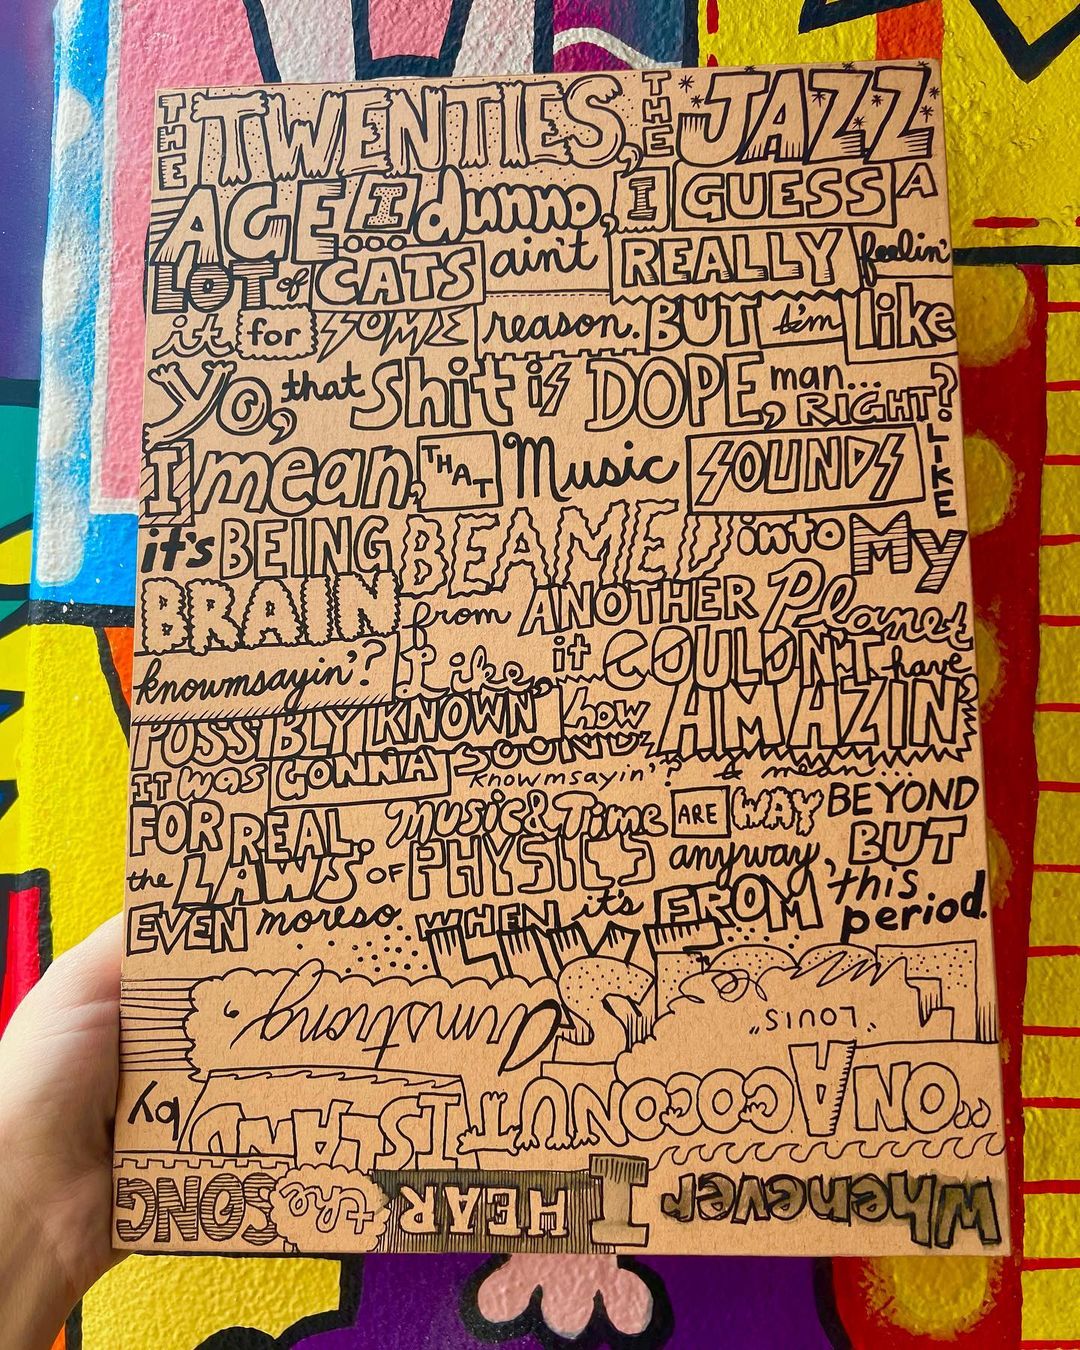 THE TWENTIES, THE JAZZ
AGE... I dunno, I GUESS A
LOT of CATS ain't REALLY feelin'
it for SOME reason. BUT I'm like
yo, that shit is DOPE, man... RIGHT?
I mean, THAT Music SOUNDS LIKE
it's BEING BEAMED into MY
BRAIN from ANOTHER Planet
knowmsayin'? Like, it COULDN'T have
POSSIBLY KNOWN how AMAZIN
IT WAS GONNA SOUND knowmsayin'? I mean...
FOR REAL. Music & Time ARE WAY BEYOND
the LAWS OF PHYSICS anyway, BUT
EVEN moreso WHEN it's FROM this period.
Whenever I HEAR the SONG
"ON A COCONUT ISLAND by
"LOUIS" Armstrong,